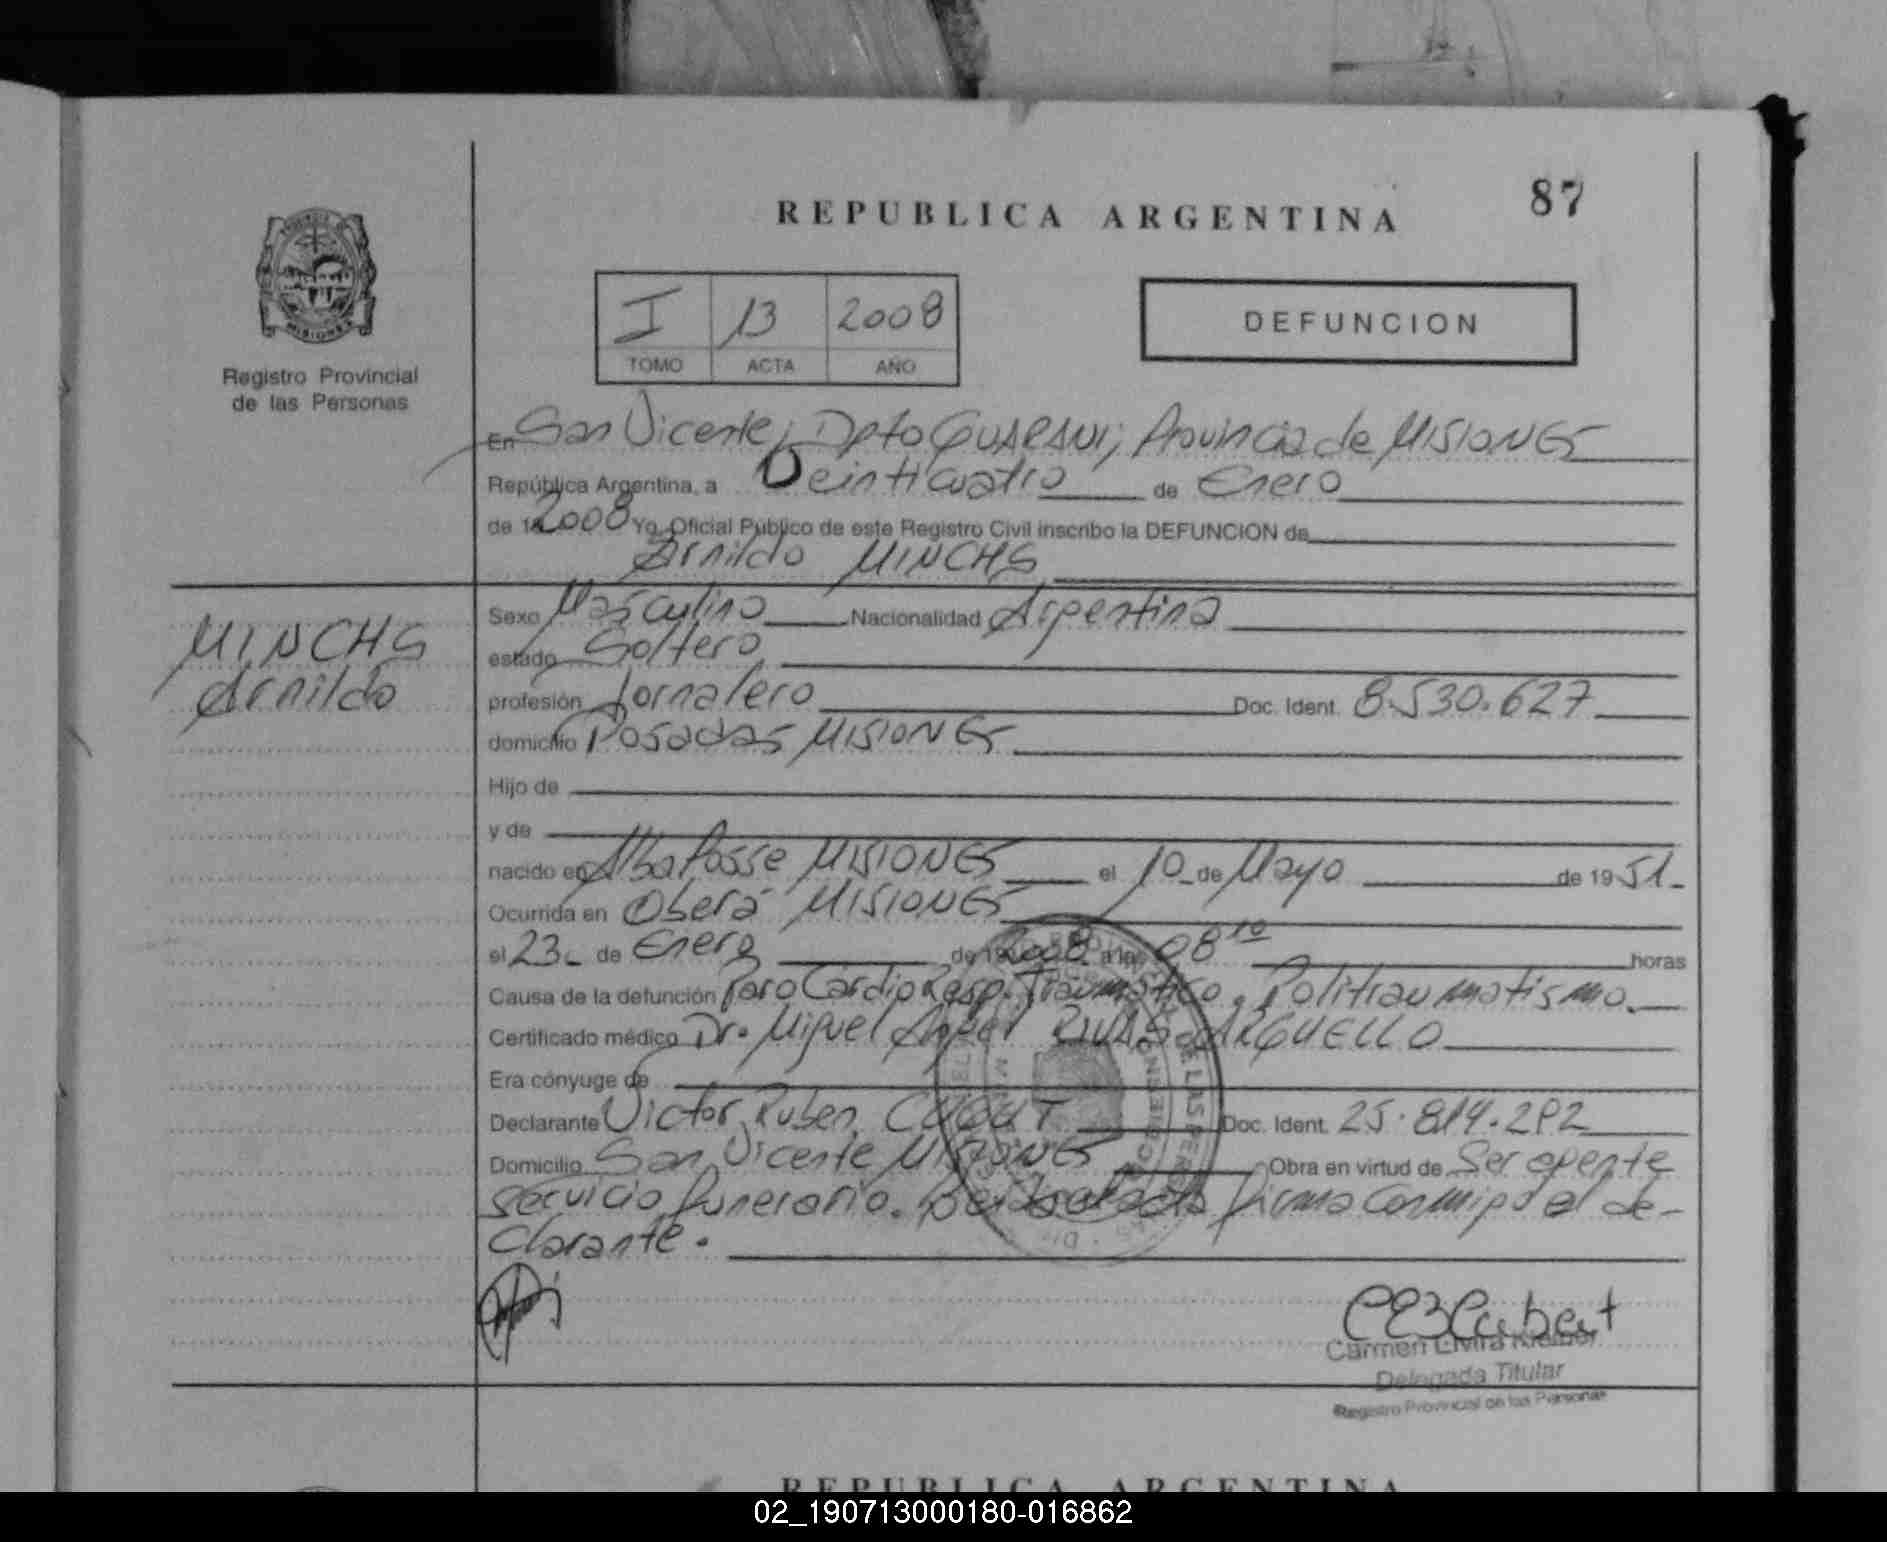 87
REPUBLICA ARGENTINA
I 13 2008
TOMO ACTA AÑO
DEFUNCION
MISIONES
Registro Provincial
de las Personas
En San Vicente, Dpto GUARANI; Provincia de MISIONES
República Argentina, a Veinticuatro de Enero
de 2008 Yo, Oficial Público de este Registro Civil inscribo la DEFUNCION de
Arnildo MINCHS
MINCHS
Arnildo
Sexo Masculino Nacionalidad Argentina
estado Soltero
profesión Jornalero Doc. Ident. 8.530.627
domicilio Posadas MISIONES
Hijo de
y de
nacido en Alba Posse MISIONES el 10 de Mayo de 1951.
Ocurrida en Oberá MISIONES
el 23 de Enero de 2008 a las 08 10 horas
Causa de la defunción Paro Cardio Resp. Traumático. Politraumatismo.
Certificado médico Dr. Miguel Angel RIVAS ARGUELLO
Era cónyuge de
Declarante Victor Ruben Doc. Ident. 25.814.292
Domicilio San Vicente MISIONES Obra en virtud de Ser agente
servicio funerario. firma conmigo el de-
clarante.
Carmen Elvira
Delegada Titular
Registro Provincial de las Personas
REPUBLICA ARGENTINA
02_190713000180-016862